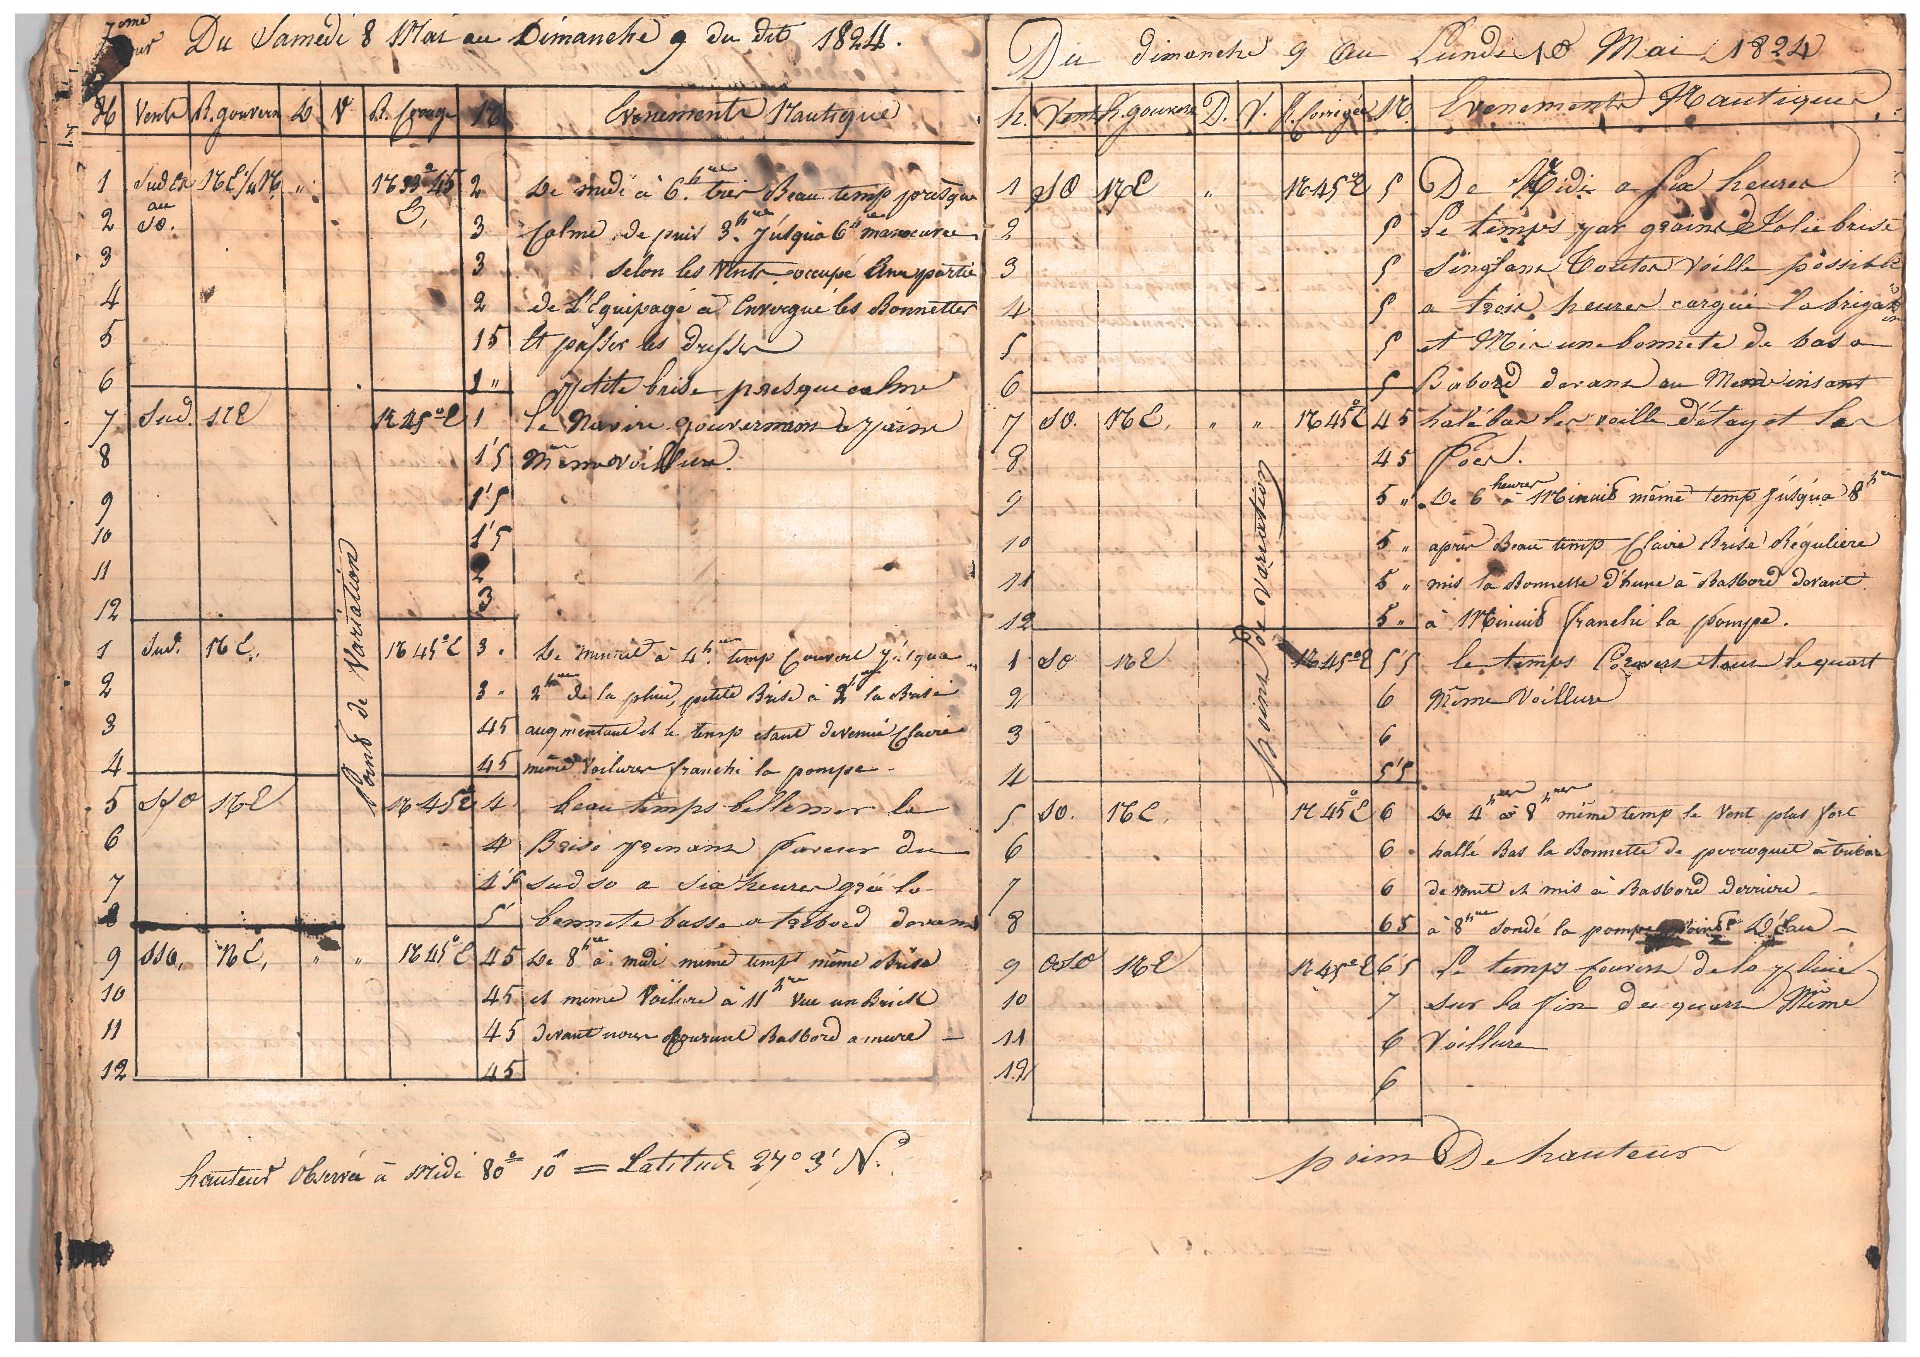 7ème jour Du Samedi 8 Mai au Dimanche 9 du dit 1824.
H Vents R. gouvern D V R. Corrigé N Evenements Nautique
1 Sud Est NE 1/4 N " N 33° 45 2 De midi à 6 hres trés Beau temp presque
au E,
2 SO. 3 Calme, de puis 3 hres jusqua 6 hres manoeuvré
3 3 Selon les Vents occupé Une partie
4 2 de L'Equipage à Envergué les Bonnettes
5 15 Et passer les drisses
6 1 " petite brise presque calme
7 Sud. NE N 45° E 1 le Navire gouvernant a peine
8 1'5 Même voillure.
9 1'5
10 1'5
11 2
12 3
Point de Variation
1 Sud. NE. N 45° E 3 . De minuit à 4 h. temp Couvert jusqua
2 3 . 2 hres de la pluie, petite Brise à 2 hres la Brise
3 45 augmentant et le temp etant devenue Claire
4 45 même Voilures franchi la pompe -
5 SSO NE N 45° E 4 beau temps belle mer la
6 4 Brise prenant faveur du
7 4'5 Sud SO a six heures gréé la
8 5' bonnete basse a tribord devant
9 SSO, NE, " " N 45° E 45 De 8 hres à midi meme temps même Brise
10 45 et meme Voilure à 11 hres Vue un Brick
11 45 devant nous Courant Basbord amure -
12 45
hauteur Observée à Midi 80° 10' = Latitude 27° 3' N.
Du dimanche 9 Au Lundi 10 Mai 1824
h. Vents R. gouverné D. V. R. Corrigée N. Evenements Nautiques
1 SO NE " N 45° E 5 De Midi a Six heures
2 5 Le temps par grains Jolie brise
3 5 Singlant Toutes Voille possible
4 5 a trois heures cargué la brigantin
5 5 et Mis une bonnete de bas a
6 5 Babord devant au Meme instant
7 SO. NE. " " N 45° E 45 halé bas les voille d'étay et les
8 45 focs.
9 5 " De 6 heures à Minuit même temp jusqua 8 hres
10 5 " aprés Beau temp Claire Brise Réguliere
11 5 " mis la Bonnette d'hune à Basbord devant
12 5 " à Minuit franchi la pompe.
point de Variation
1 SO NE N 45° E 5'5 le temps Couvers tous le quart
2 6 Même Voillure
3 6
4 5'5
5 SO. NE. N 45° E 6 De 4 hres à 8 hres même temp le Vent plus fort
6 6 hallé Bas la Bonnette de perroquet à tribor
7 6 devant et mis à Basbord derriere -
8 65 à 8 hres sondé la pompe point D'Eau -
9 OSO NE N 45° E 6'5 Le temps Couvers de la pluie
10 7 sur la fin du quart Même
11 6 Voillure
12 6
point De hauteur